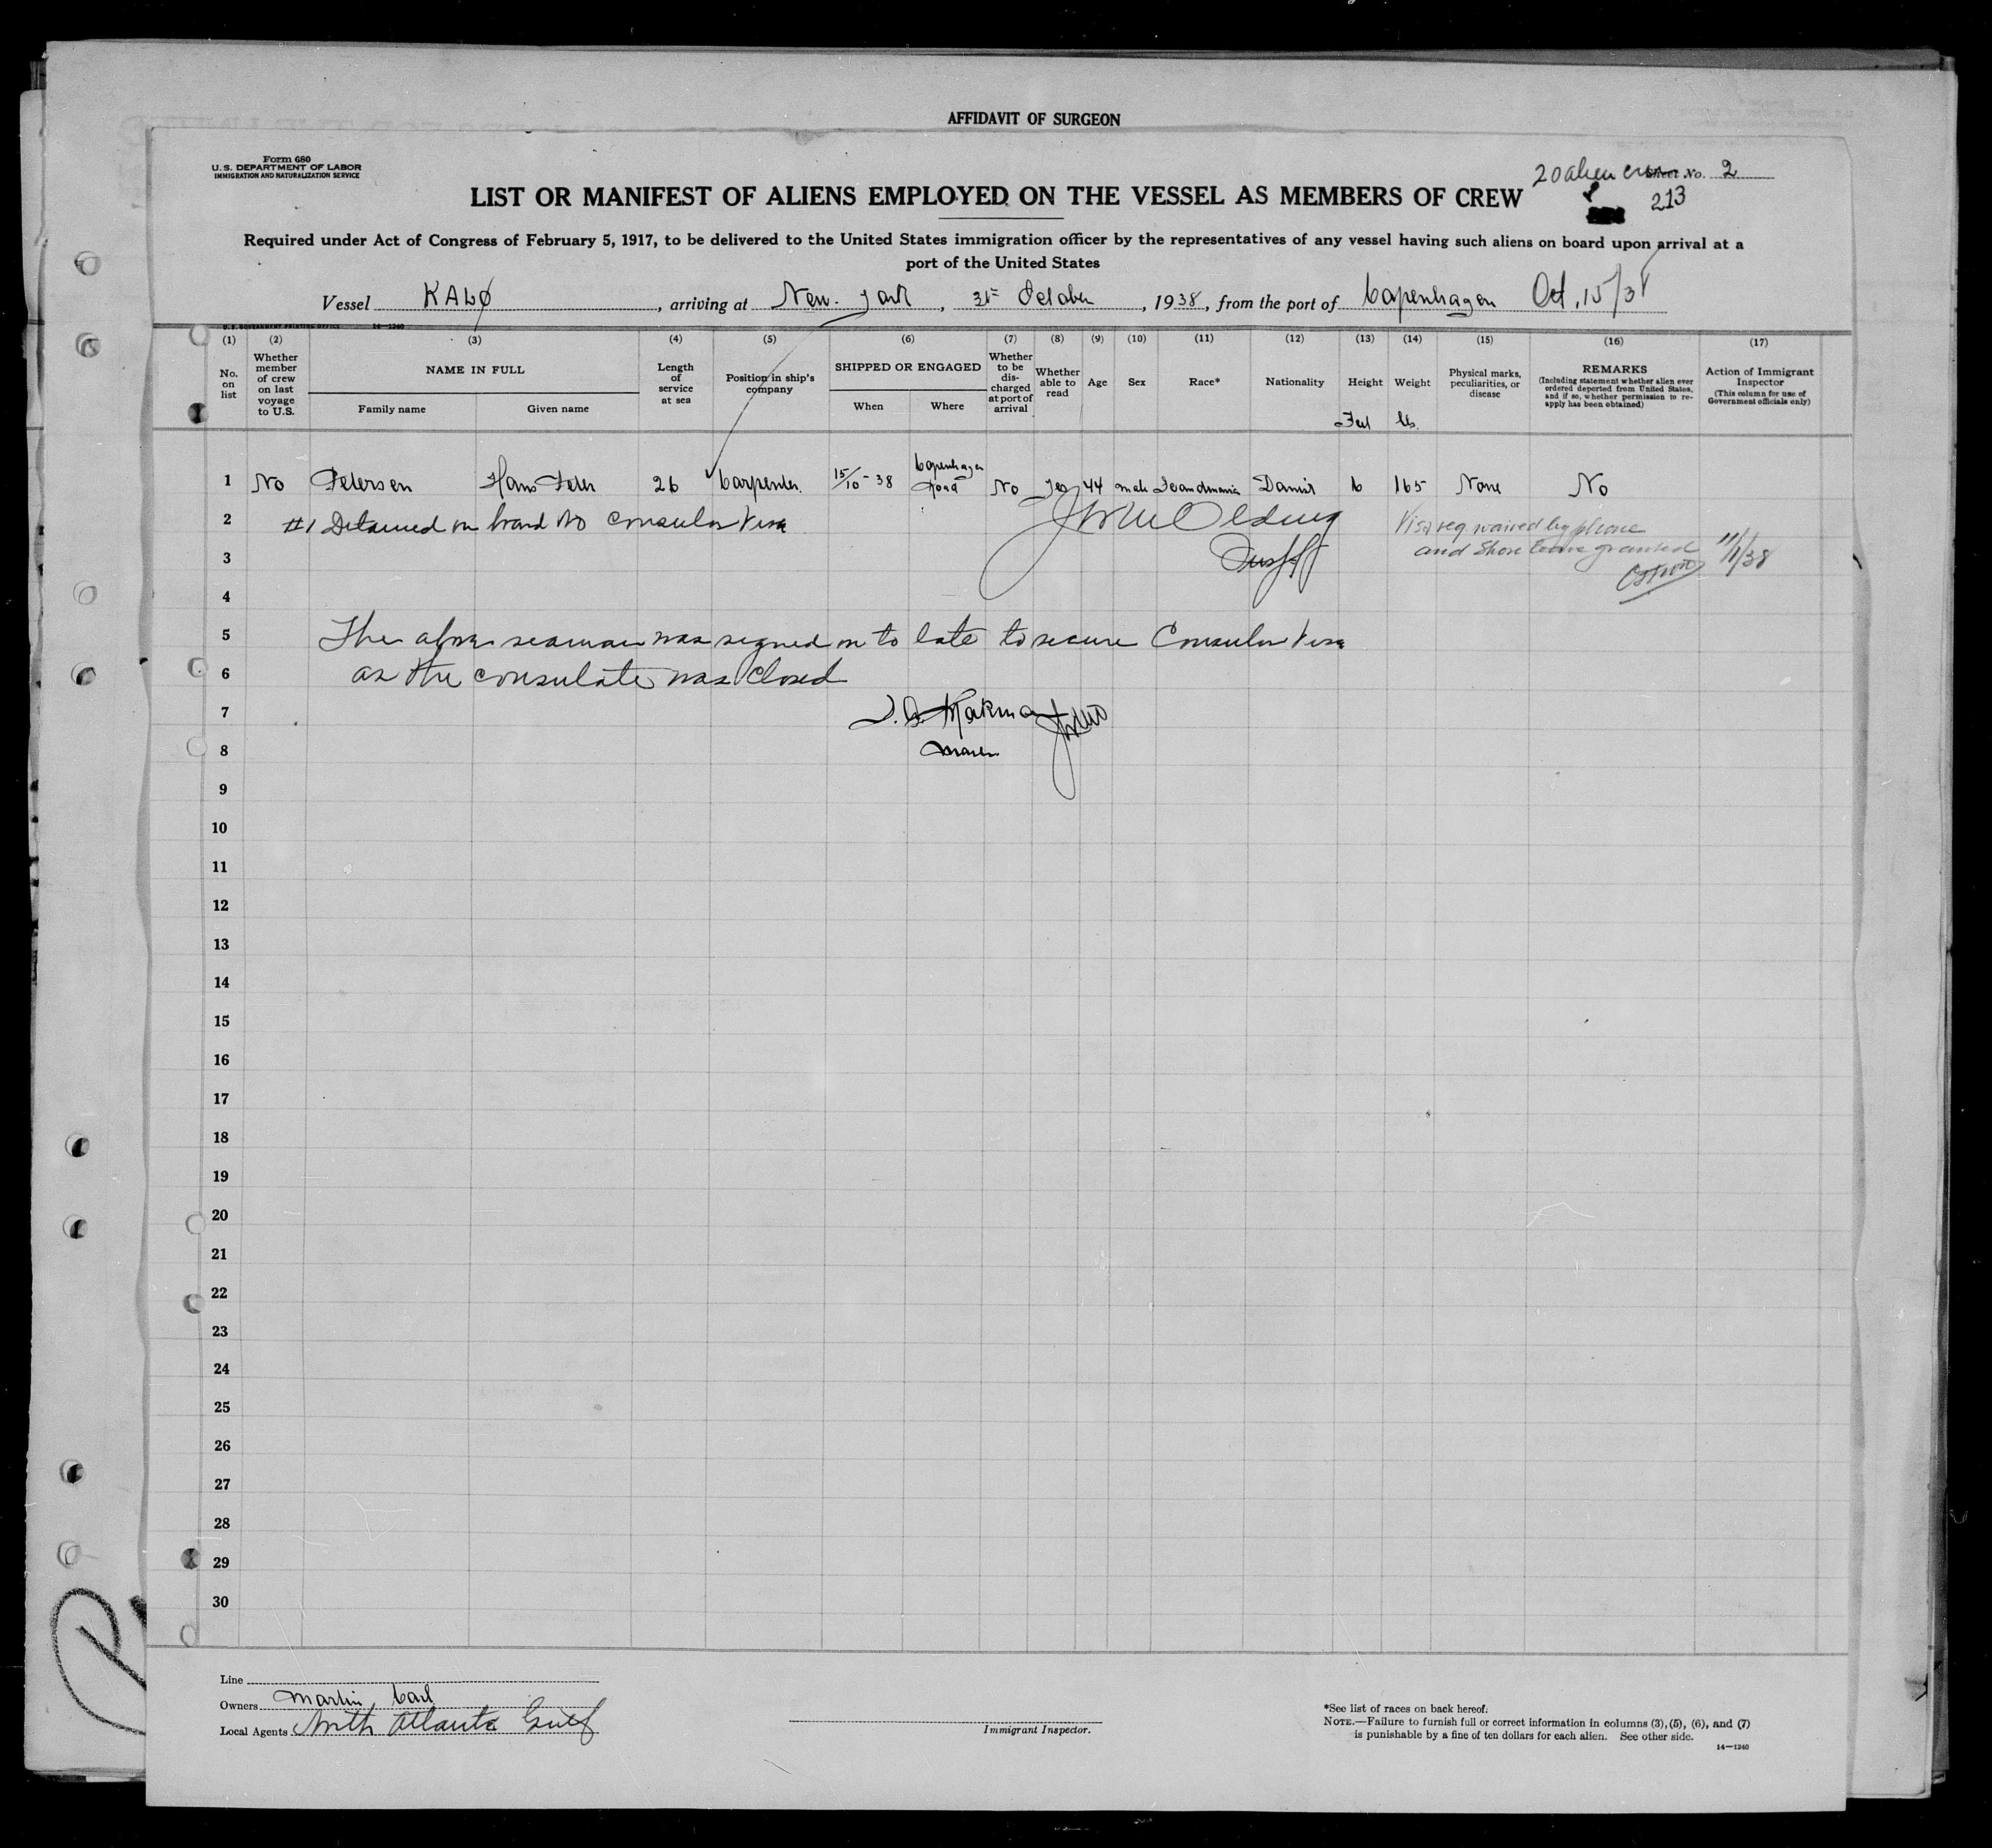 AFFIDAVIT OF SURGEON
Form 680
U. S. DEPARTMENT OF LABOR
IMMIGRATION AND NATURALIZATION SERVICE
20 alien crew No. 2
213
LIST OR MANIFEST OF ALIENS EMPLOYED ON THE VESSEL AS MEMBERS OF CREW
Required under Act of Congress of February 5, 1917, to be delivered to the United States immigration officer by the representatives of any vessel having such aliens on board upon arrival at a
port of the United States
Vessel KALØ, arriving at New-York, 31st October, 1938, from the port of Copenhagen Oct, 15/38
U. S. GOVERNMENT PRINTING OFFICE 14—1240
(1) (2) (3) (4) (5) (6) (7) (8) (9) (10) (11) (12) (13) (14) (15) (16) (17)
No. on list
Whether member of crew on last voyage to U.S.
NAME IN FULL
Family name
Given name
Length of service at sea
Position in ship's company
SHIPPED OR ENGAGED
When
Where
Whether to be discharged at port of arrival
Whether able to read
Age
Sex
Race*
Nationality
Height
Weight
Physical marks, peculiarities, or disease
REMARKS
(Including statement whether alien ever ordered deported from United States, and if so, whether permission to re-apply has been obtained)
Action of Immigrant Inspector
(This column for use of Government officials only)
Feet lbs.
1 No Petersen Hans Peter 26 Carpenter. 15/10-38 Copenhagen No Yes 44 male Scandinavia Danish 6 165 None No
2 #1 Detained on board No Consular Visa Visa req. waived by phone
3 and Shore leave granted 11/1/38
4
5 The above seaman was signed on to late to secure Consular Visa
6 as the consulate was closed
7
8 Master
9
10
11
12
13
14
15
16
17
18
19
20
21
22
23
24
25
26
27
28
29
30
Line
Owners Martin, Carl
Local Agents North Atlantic Gulf
Immigrant Inspector.
*See list of races on back hereof.
NOTE.—Failure to furnish full or correct information in columns (3), (5), (6), and (7)
is punishable by a fine of ten dollars for each alien. See other side.
14—1240